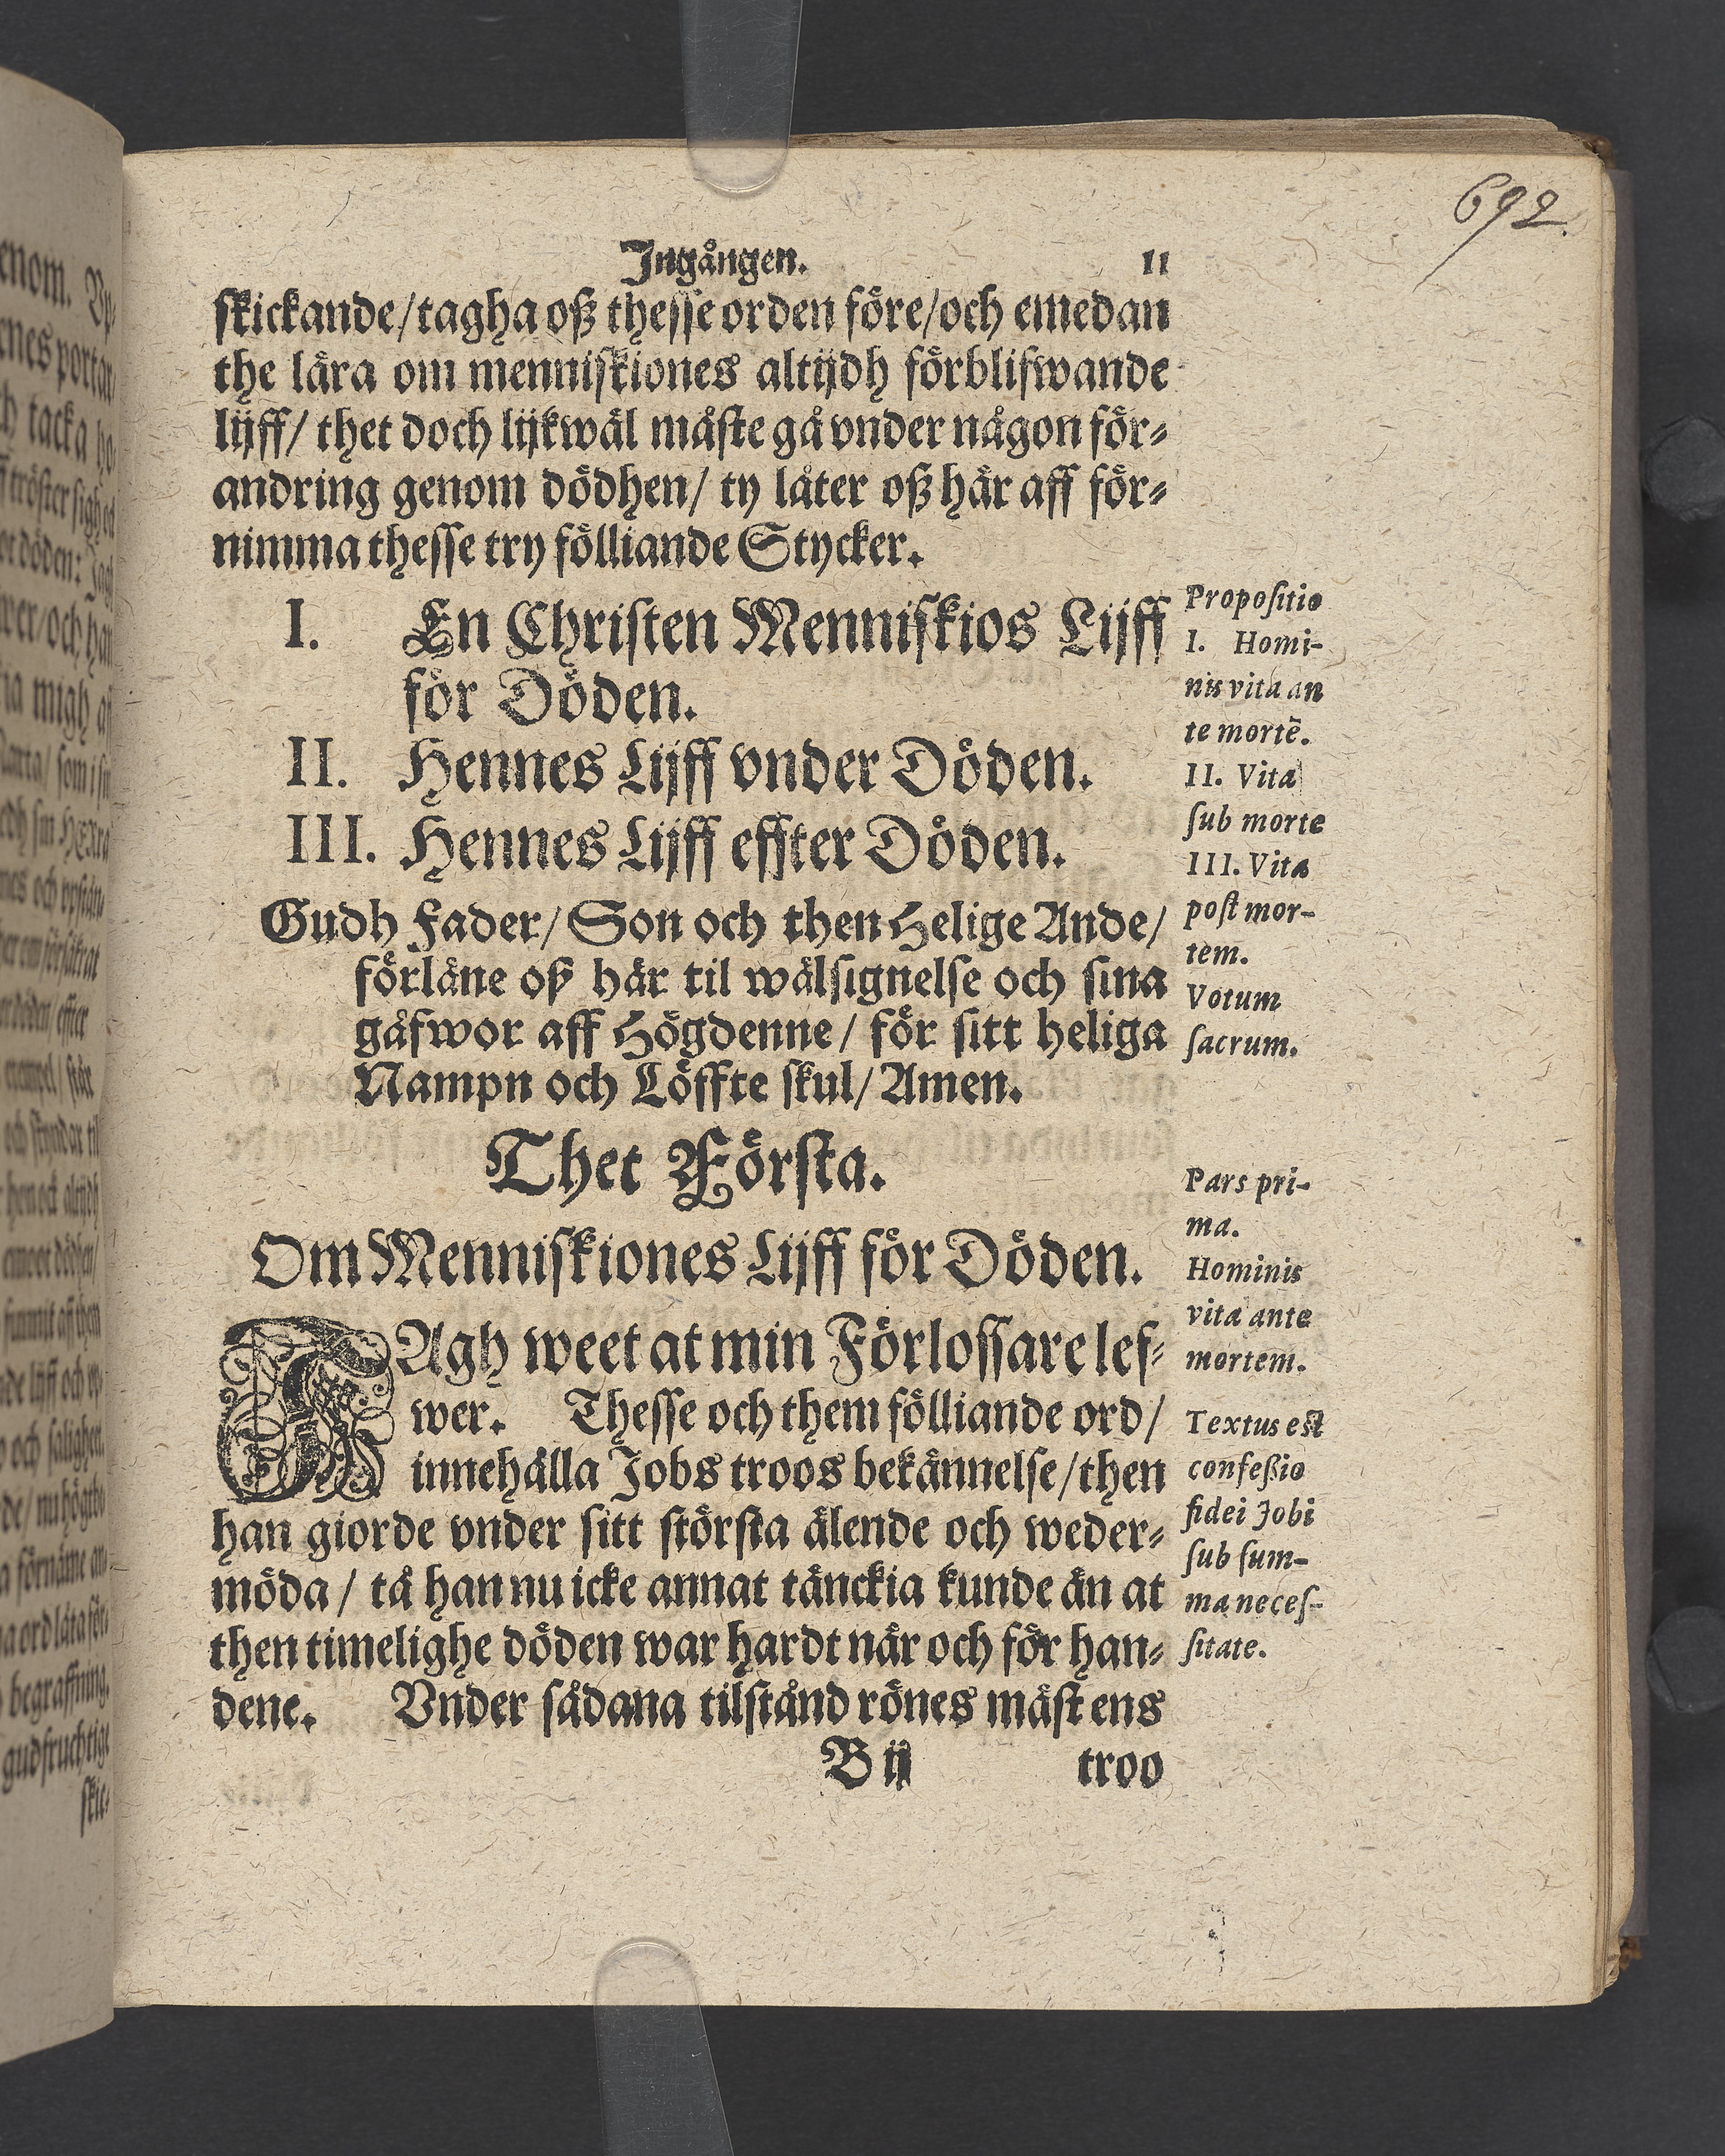 692.
Ingången. 11
skickande/tagha oß thesse orden före/och emedan
the lära om menniskiones altijdh förblifwande
lijff/ thet doch lijkwäl måste gå vnder någon för-
andring genom dödhen/ ty låter oß här aff för-
nimma thesse try fölliande Stycker.
I. En Christen Menniskios Lijff
för Döden.
II. Hennes Lijff vnder Döden.
III. Hennes Lijff effter Döden.
Gudh Fader/ Son och then Helige Ande/
förläne oß här til wälsignelse och sina
gåfwor aff Högdenne/ för sitt heliga
Nampn och Löffte skul/ Amen.
Propositio
I. Homi-
nis vita an
te mortē.
II. Vita
sub morte
III. Vita
post mor-
tem.
Votum
sacrum.
Thet Första.
Om Menniskiones Lijff för Döden.
JAgh weet at min Förlossare lef-
wer. Thesse och them fölliande ord/
innehålla Jobs troos bekännelse/then
han giorde vnder sitt största älende och weder-
möda/ tå han nu icke annat tänckia kunde än at
then timelighe döden war hardt när och för han-
dene. Vnder sådana tilstånd rönes mäst ens
Pars pri-
ma.
Hominis
vita ante
mortem.
Textus est
confeßio
fidei Jobi
sub sum-
ma neces-
sitate.
B ij troo